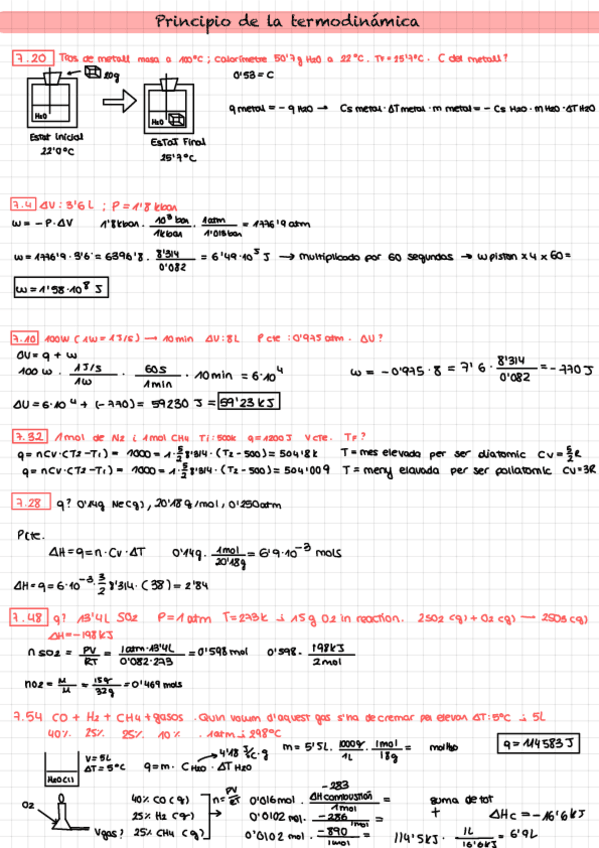 Principio de la termodinámica
7.20 Tros de metall massa a 100°C; calorímetre 50'7g H2O a 22°C. TF = 25'7°C. C del metall?
20g
0'53 = C
H2O
H2O
q metal = - q H2O → Cs metal · ΔT metal · m metal = - Cs H2O · m H2O · ΔT H2O
Estat Inicial
22'0°C
Estat Final
25'7°C
7.4 ΔV: 3'6 L ; P = 1'8 kbar
w = - P·ΔV 1'8 kbar · 10³ bar / 1 kbar · 1 atm / 1'013 bar = 1776'9 atm
w = 1776'9 · 3'6 = 6396'8 · 8'314 / 0'082 = 6'49·10⁵ J → multiplicado por 60 segundos → w piston x 4 x 60 =
w = 1'58·10⁸ J
7.10 100W (1W = 1J/s) → 10 min ΔV: 8L P cte : 0'975 atm . ΔU?
ΔU = q + w
100 W · 1J/s / 1W · 60s / 1min · 10 min = 6·10⁴
w = - 0'975 · 8 = 7'6 · 8'314 / 0'082 = - 770 J
ΔU = 6·10⁴ + (-770) = 59230 J = 59'23 KJ
7.32 1 mol de N2 i 1 mol CH4 Ti: 500k q = 1200 J V cte. TF?
q = nCv·(T2-T1) = 1000 = 1·5/2 8'314·(T2-500) = 504'8k T = mes elevada per ser diatomic Cv = 5/2 R
q = nCv·(T2-T1) = 1000 = 1·5/2 8'314·(T2-500) = 504'009 T = meny elavada per ser poliatomic Cv = 3R
7.28 q? 0'14g Ne(g), 20'18 g/mol, 0'250 atm
P cte.
ΔH = q = n·Cv·ΔT 0'14g · 1mol / 20'18g = 6'9·10⁻³ mols
ΔH = q = 6·10⁻³·3/2 8'314·(38) = 2'84
7.48 q? 13'4L SO2 P = 1 atm T = 273k i 15g O2 in reaction. 2SO2 (g) + O2 (g) → 2SO3 (g)
ΔH = -198 KJ
n SO2 = PV / RT = 1 atm·13'4L / 0'082·273 = 0'598 mol 0'598 · 198 KJ / 2 mol
nO2 = M / M = 15g / 32g = 0'469 mols
7.54 CO + H2 + CH4 + gasos . Quin volum d'aquest gas s'ha de cremar per elevar ΔT: 5°C i 5L
40% 25% 25% 10% . 1 atm i 298°C
V = 5L
ΔT = 5°C
H2O (l)
q = m· C H2O · ΔT H2O
4'18 J/°C·g
m = 5'5L · 1000g / 1L · 1mol / 18g = mol H2O
q = 114583 J
O2
V gas?
40% CO (g)
25% H2 (g)
25% CH4 (g)
n = PV / RT
0'016 mol · -283 ΔH combustión / 1 mol =
0'0102 mol · -286 / 1 mol =
0'0102 mol · -890 / 1 mol =
suma de tot
+
ΔHc = -16'6 KJ
114'5 KJ · 1L / 16'6 KJ = 6'9L